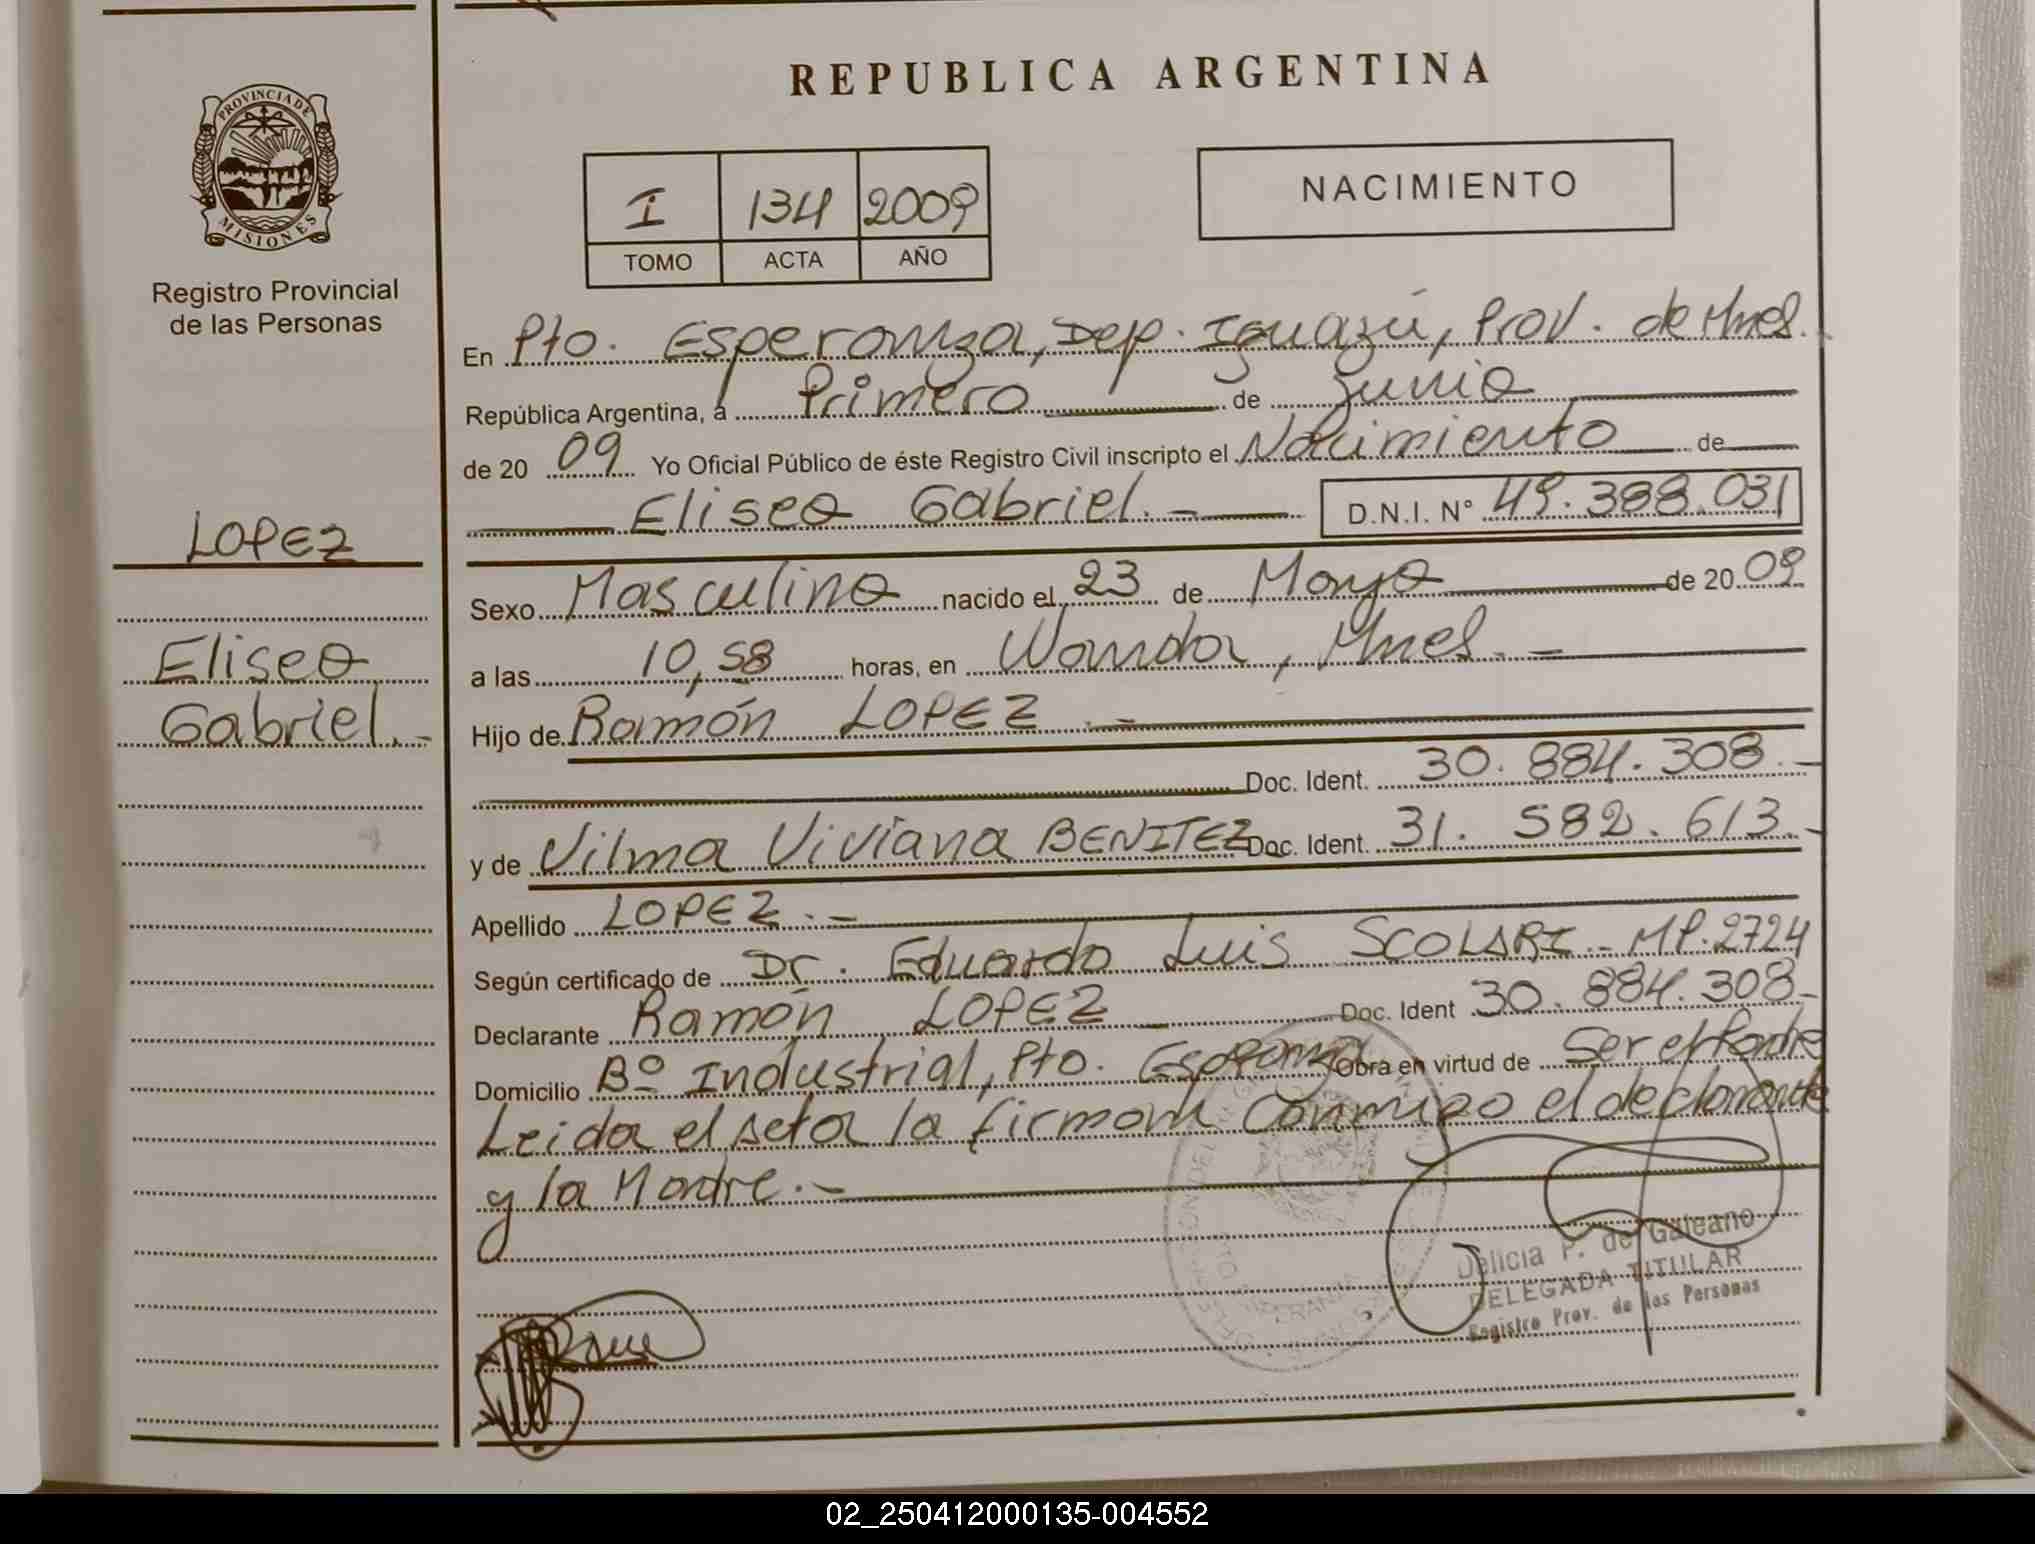 REPUBLICA ARGENTINA
PROVINCIA DE
MISIONES
Registro Provincial
de las Personas
I 134 2009
TOMO ACTA AÑO
NACIMIENTO
En Pto. Esperanza, Dep. Iguazú, Prov. de Mnes.
República Argentina, a Primero de Junio
de 20 09 Yo Oficial Público de éste Registro Civil inscripto el Nacimiento de
Eliseo Gabriel.- D.N.I. N° 49.388.031
LOPEZ
Eliseo
Gabriel.-
Sexo Masculino nacido el 23 de Mayo de 20 09
a las 10,58 horas, en Wanda, Mnes.-
Hijo de Ramón LOPEZ.-
Doc. Ident. 30.884.308.-
y de Vilma Viviana BENITEZ Doc. Ident. 31.582.613.-
Apellido LOPEZ.-
Según certificado de Dr. Eduardo Luis SCOLARI - MP. 2724
Declarante Ramón LOPEZ - Doc. Ident 30.884.308-
Domicilio Bº Industrial, Pto. Esperanza Obra en virtud de Ser el Padre
Leida el acta la firman conmigo el declarante
y la Madre.-
Delicia P. de Galeano
DELEGADA TITULAR
Registro Prov. de las Personas
02_250412000135-004552